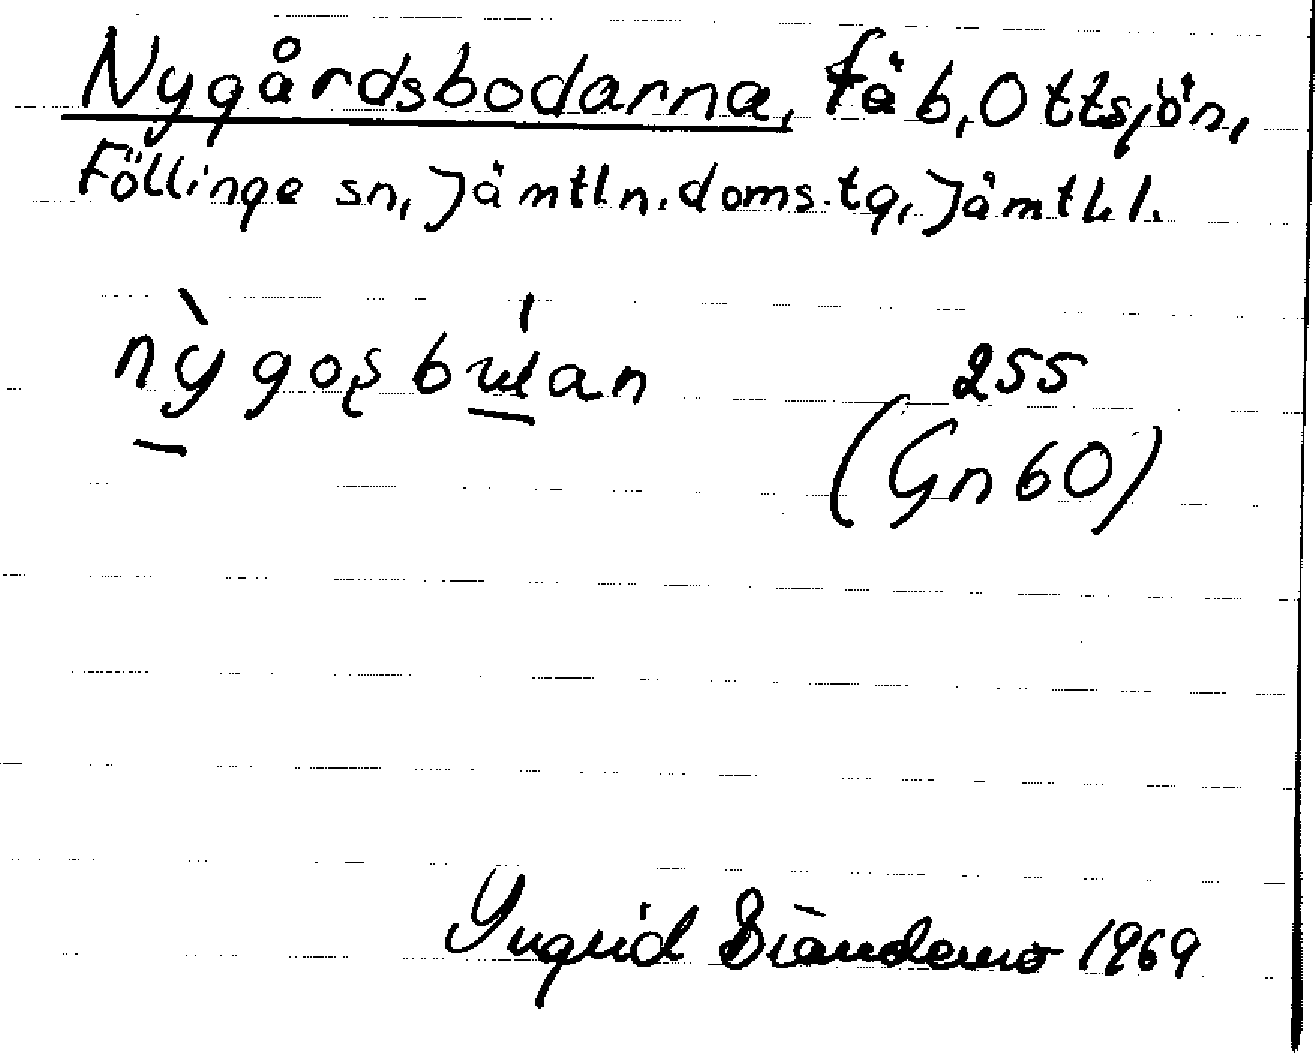 Nygårdsbodarna, fäb, Ottsjön,
Föllinge sn, Jämtln. doms. tg, Jämtl. l.
nỳgoșbu̍an
255
(Gn 60)
Ingrid Brändemo 1969